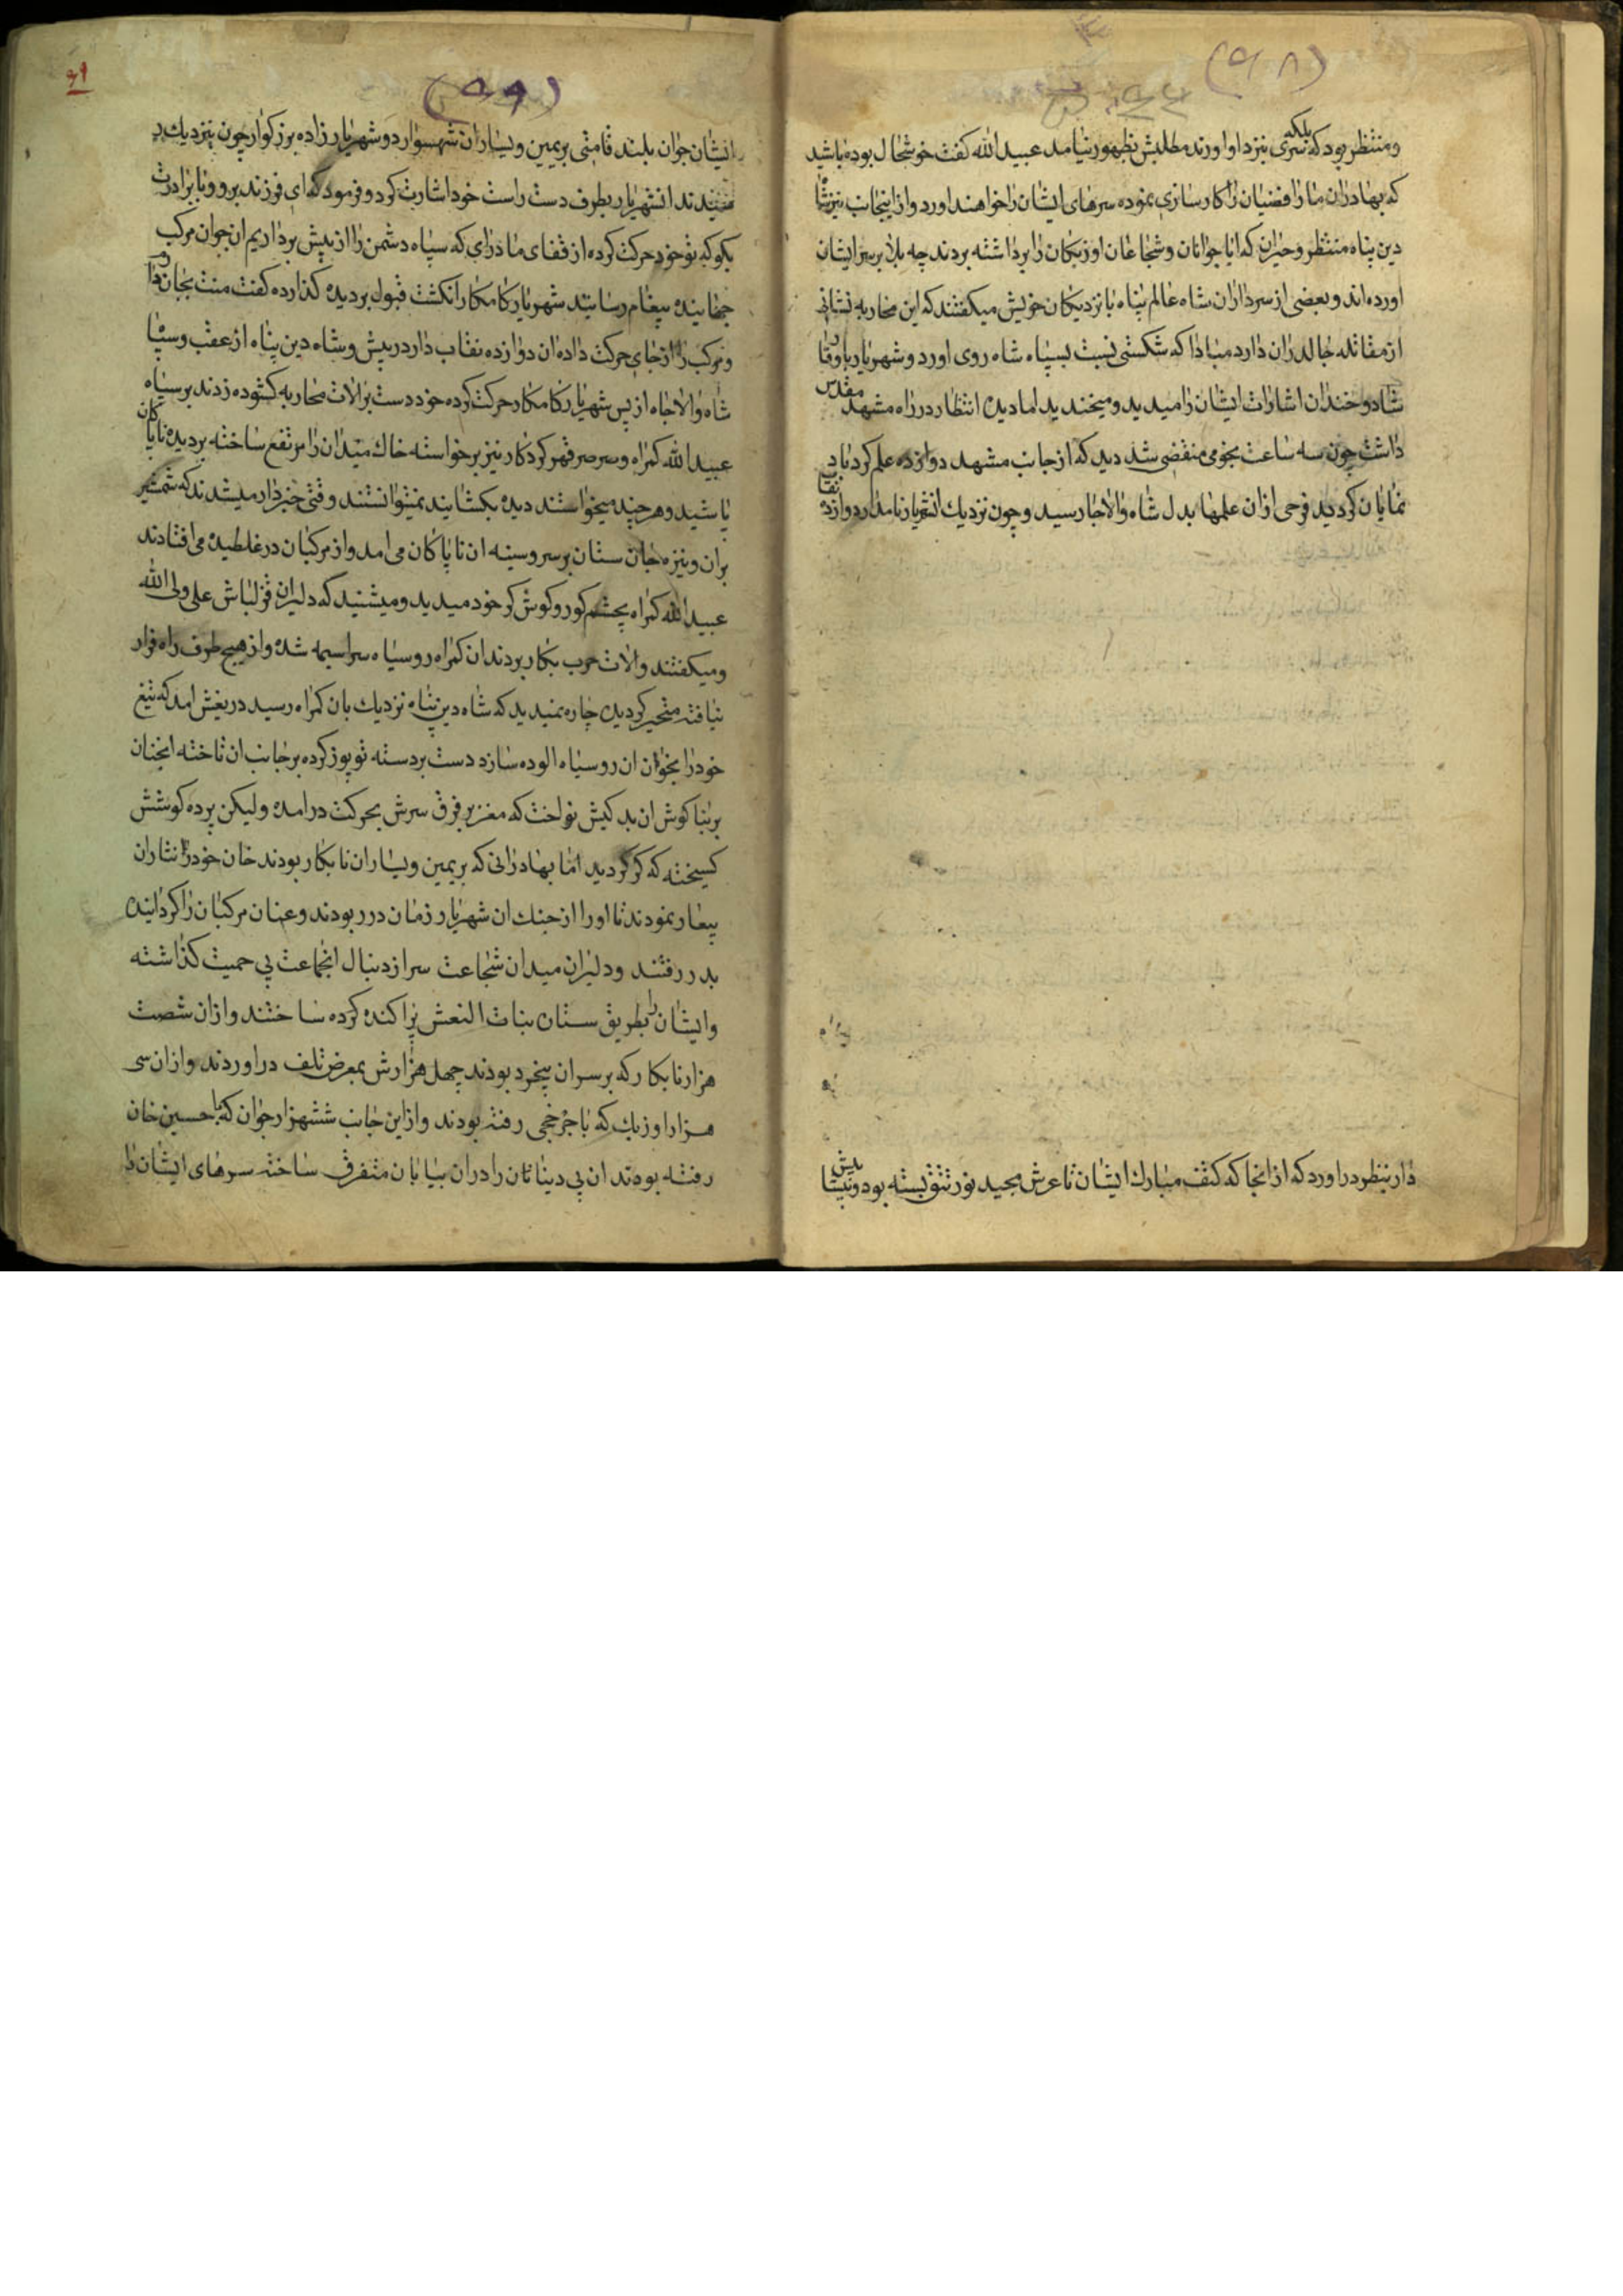 (٥٨)
ومنتظر بود که بلکه سری نیزد او اورند مطلبش بظهور نیامد عبید الله کفت خوشحال بوده باشید
که بهادران ما رافضیان را کارسازی نموده سرهای ایشان را خواهند اورد و از اینجانب نیز شاه
دین پناه منتظر و حیران که ایا جوانان و شجاعان اوزبکان را برداشته بردند چه بلا بر سر ایشان
اورده اند و بعضی از سرداران شاه عالم پناه با نزدیکان خویش میکفتند که این محاربه نشانی
از مقاتله جالدران دارد مبادا که شکستی نسبت بسپاه شاه روی اورد و شهریار با وقار
شاد و خندان اشارات ایشان را میدید و میخندید اما دیده انتظار در راه مشهد مقدس
داشت چون سه ساعت نجومی منقضی شد دید که از جانب مشهد دوازده علم کرد باد
نمایان کردید فرحی ازان علمها بدل شاه والاجا رسید و چون نزدیک انشهریار نامدار دوازده نقاب
دار بنظر در اورد که از انجا که کتف مبارک ایشان تا عرش مجید نور تتق بسته بود و پیشاپیش
٩١
(٥٩)
ایشان جوان بلند قامتی بر یمین و یساران شهسوار دو شهریار زاده بزرکوار چون بنزدیک
رسیدند انشهریار بطرف دست راست خود اشارت کرد و فرمود که ای فرزند برو و با برادرت
بکو که تو خود حرکت کرده از قفای ما درای که سپاه دشمن را از پیش برداریم ان جوان مرکب
جهانیده پیغام رسانید شهریار کامکار انکشت قبول بر دیده کذارده کفت منت بجان دارم
و مرکب را از جای حرکت داده ان دوازده نقاب دار در پیش و شاه دین پناه از عقب و سپاه
شاه والاجاه از پس شهریار کامکار حرکت کرده خود دست بر الات محاربه کشوده زدند بر سپاه
عبید الله کمراه و صرصر قهر کردکار نیز برخواسته خاک میدان را مرتفع ساخته بر دیده ناپاکان
پاشید و هر چند میخواستند دیده بکشایند نمیتوانستند وقتی خبردار میشدند که شمشیر
بران و نیزه جان ستان بر سر و سینه ان ناپاکان می امد و از مرکبان در غلطیده می افتادند
عبید الله کمراه بچشم کور و کوش کر خود میدید و میشنید که دلیران قزلباش علی ولی الله
و میکفتند و الات حرب بکار بردند ان کمراه روسیاه سراسیمه شده و از هیچ طرف راه فرار
نیافته متحیر کردیده چاره نمیدید که شاه دین پناه نزدیک بان کمراه رسید دریغش امد که تیغ
خود را بخوان ان روسیاه الوده سازد دست بر دسته توپوز کرده بر جانب ان تاخته انچنان
بر بناکوش ان بد کیش نواخت که مغز بر فرق سرش بحرکت در امده و لیکن پرده کوشش
کسیخته که کر کردید اما بهادرانی که بر یمین و یساران نابکار بودند خان خود را نثاران
بیعار نمودند تا او را از جنک ان شهریار زمان در ربودند و عنان مرکبان را کردانیده
بدر رفتند و دلیران میدان شجاعت سر از دنبال انجماعت بی حمیت کذاشته
و ایشان را بطریق ستان بنات النعش پراکنده کرده ساختند و ازان شصت
هزار نابکار که بر سر ان بیخرد بودند چهل هزارش بمعرض تلف در اوردند و ازان سی
هزار اوزبک که با جرخجی رفته بودند و از این جانب ششهزار جوان که با حسین خان
رفته بودند ان بی دینانان را دران بیابان متفرق ساخته سرهای ایشان را